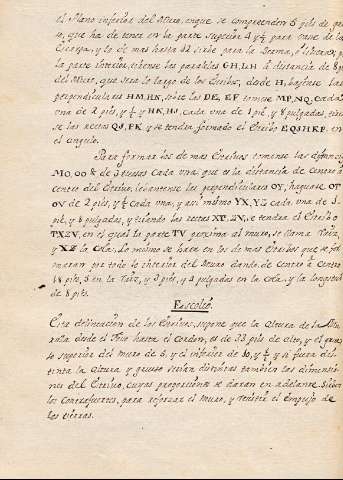 el Plano inferior del Muro, en que se comprenden 5 pils de grue
so, que ha de tener en la parte superior 4 y ½ para vase de la
Escarpa, y lo de mas hasta 12 sirve para la Berma, ô
la parte interior, tirense las paralelas GH, LH à distancia de 8 pil
del Muro, que sera lo largo de los Estribos, desde H, bajense las
perpendiculares HM, HN, sobre las DE, EF tomese MP, NQ, cada
una de 2 pils, y ½ y HK, HJ, cada una de 1 pil, y 8 pulgadas, tiren
se las rectas QJ, PK, y se tendra formado el Estribo EQJHKP, en
el angulo.
Para formar los de mas Estribos tomense las distancias
MO, OO & de 3 tuesas cada una, que es la distancia de centro à
centro del Estribo, levantense las perpendiculares OY, hagase OT
OV de 2 pils, y ½ cada una, y asi mismo YX, YZ cada una de 1
pil, y 8 pulgadas, y tirando las rectas XT, ZV, se tendra el Estribo
TXZV, en el qual la parte TV proxima al muro, se llama Raiz,
y XZ la Cola. Lo mismo se hara en los de mas Estribos que se for
maran por todo lo interior del Muro dando de centro à centro
18 pils, 5 en la Raiz, y 3 pils, y 4 pulgadas en la Cola, y la longitud
de 8 pils.
Escolio.
Esta delineacion de los Estribos, supone que la altura de la Mu
ralla desde el Foso hasta el Cordon, es de 33 pils de alto, y el grue
so superior del muro de 5, y el inferior de 10, y ½ y si fuera dis
tinta la altura y grueso serian distintas tambien las dimensio
nes del Estribo, cuyas proporciones se daran en adelante. Sirven
los Contrafuertes, para reforzar el Muro, y resistir el empujo de
las tierras.